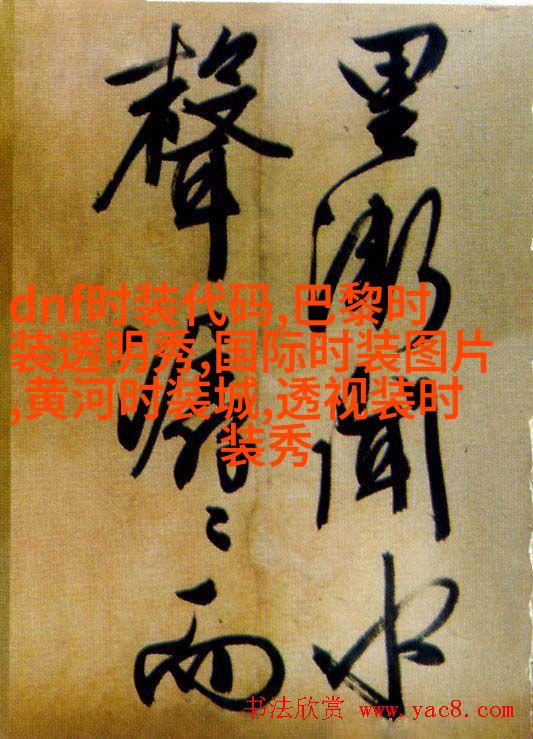 里渐闻水
声潺〻而
dnf时装代码,巴黎时
装透明秀,国际时装图片
,黄河时装城,透视装时
装秀
书法欣赏 www.yac8.com